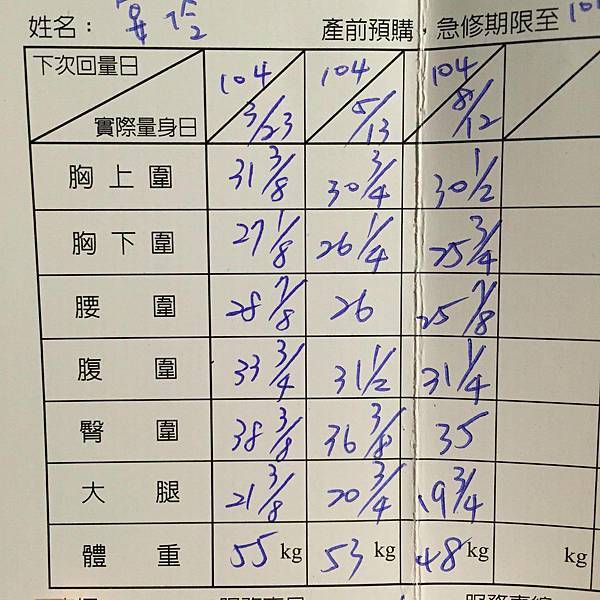 姓名：
產前預購，急修期限至 10
下次回量日 104 104 104
實際量身日 3/23 5/13 8/12
胸上圍 31 3/8 30 3/4 30 1/2
胸下圍 27 1/8 26 1/4 25 3/4
腰圍 28 7/8 26 25 7/8
腹圍 33 3/4 31 1/2 31 1/4
臀圍 38 3/8 36 3/8 35
大腿 21 3/8 20 3/4 19 3/4
體重 55 kg 53 kg 48 kg kg